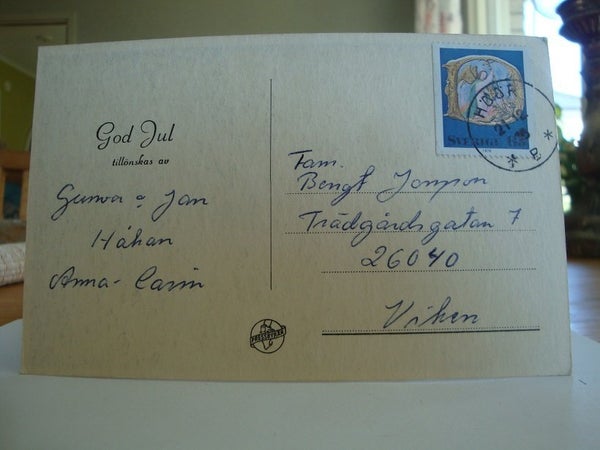 God Jul
tillönskas av
Gunvor o Jan
Håkan
Anna-Carin
Fam.
Bengt Jonsson
Trädgårdsgatan 7
26040
Viken
SVERIGE
HÖÖR
B